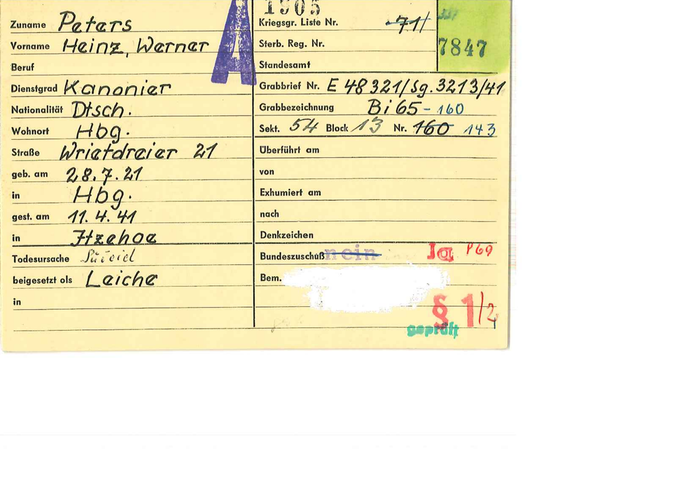 Zuname Peters
Vorname Heinz, Werner
Beruf
Dienstgrad Kanonier
Nationalität Dtsch.
Wohnort Hbg.
Straße Wrietdreier 21
geb. am 28.7.21
in Hbg.
gest. am 11.4.41
in Itzehoe
Todesursache Suicid
beigesetzt als Leiche
in
A
1905
Kriegsgr. Liste Nr. 71/
Sterb. Reg. Nr.
7847
Standesamt
Grabbrief Nr. E 48321/Sg. 3213/41
Grabbezeichnung Bi 65 - 160
Sekt. 54 Block 13 Nr. 160 143
Überführt am
von
Exhumiert am
nach
Denkzeichen
Bundeszuschuß nein Ja P69
Bem.
§ 1/2
geprüft